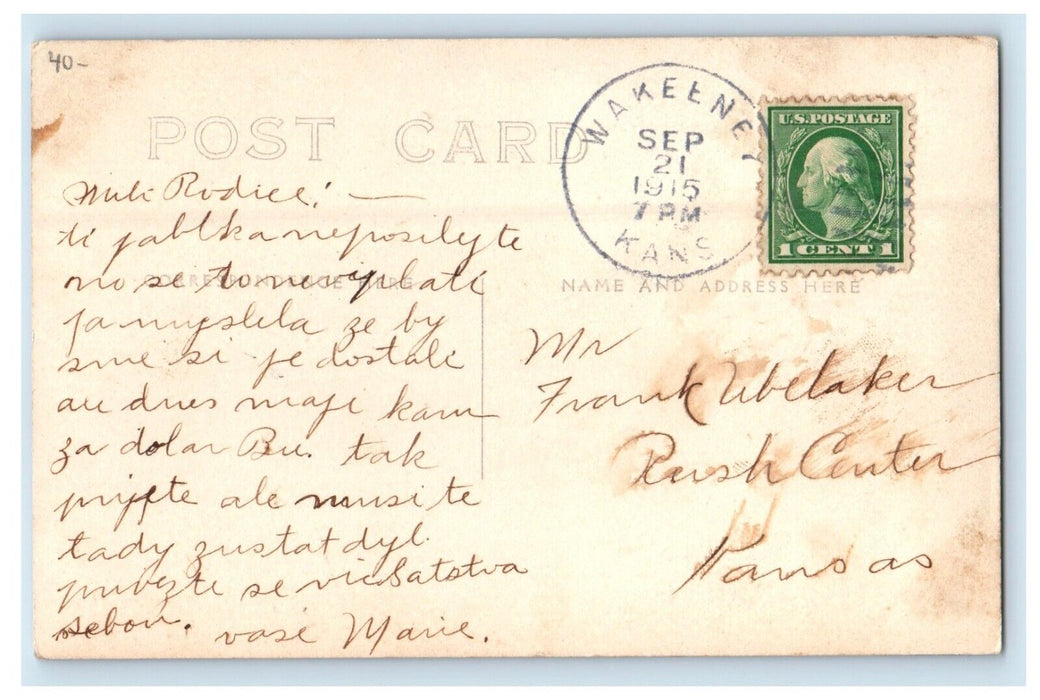 40-
POST CARD
WAKEENEY
SEP
21
1915
7 PM
KANS
U.S. POSTAGE
1 CENT 1
CORRESPONDENCE HERE
NAME AND ADDRESS HERE
Mili Rodice! —
ti jablka neposilejte
no se to nevyplati
ja myslela ze by
sme si je dostali
ale dnes maji kam
za dolar Bu. tak
prijete ale musite
tady zustat dyl.
privezte se
sebou. vase Marie.
Mr
Frank Ubelaker
Rush Center
Kansas